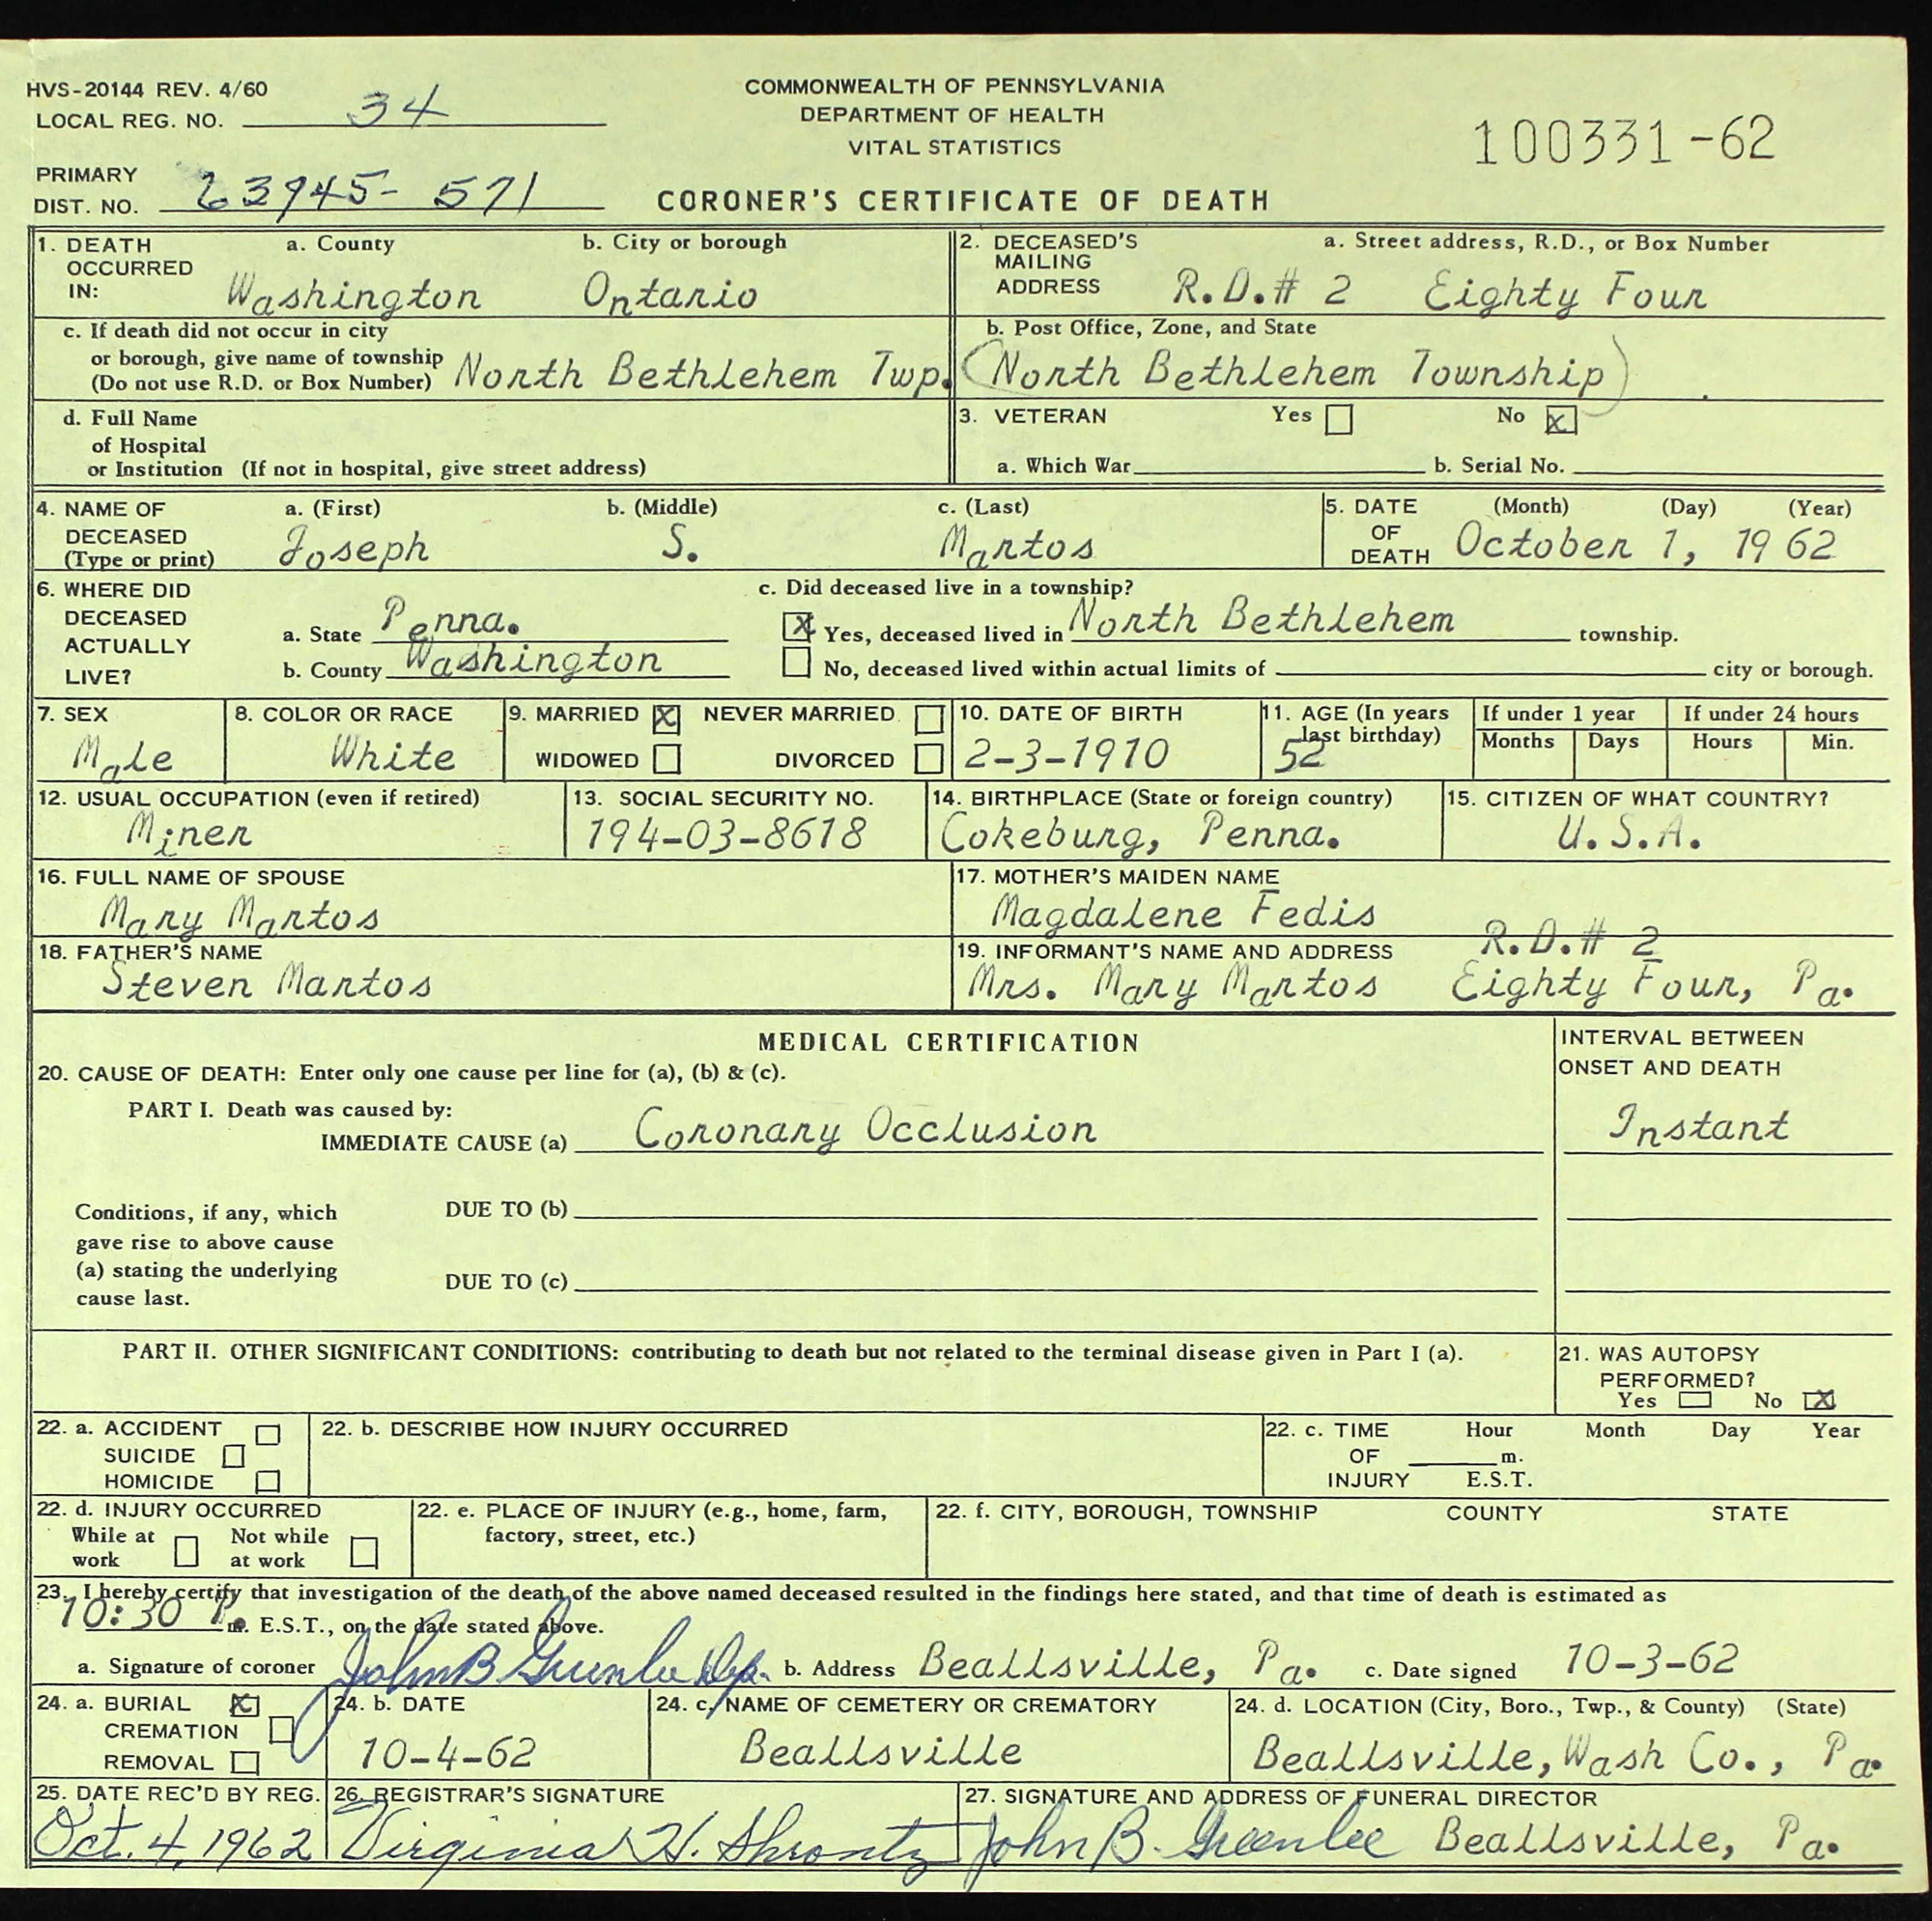 HVS-20144 REV. 4/60
LOCAL REG. NO. 34
COMMONWEALTH OF PENNSYLVANIA
DEPARTMENT OF HEALTH
VITAL STATISTICS
100331-62
PRIMARY
DIST. NO. 63945-571
CORONER'S CERTIFICATE OF DEATH
1. DEATH OCCURRED IN: a. County b. City or borough
Washington Ontario
2. DECEASED'S MAILING ADDRESS a. Street address, R.D., or Box Number
R.D.# 2 Eighty Four
c. If death did not occur in city
or borough, give name of township
(Do not use R.D. or Box Number) North Bethlehem Twp.
b. Post Office, Zone, and State
(North Bethlehem Township)
d. Full Name
of Hospital
or Institution (If not in hospital, give street address)
3. VETERAN Yes No X
a. Which War b. Serial No.
4. NAME OF DECEASED (Type or print) a. (First) b. (Middle) c. (Last)
Joseph S. Martos
5. DATE OF DEATH (Month) (Day) (Year)
October 1, 1962
6. WHERE DID DECEASED ACTUALLY LIVE?
a. State Penna.
b. County Washington
c. Did deceased live in a township?
X Yes, deceased lived in North Bethlehem township.
No, deceased lived within actual limits of city or borough.
7. SEX
Male
8. COLOR OR RACE
White
9. MARRIED X NEVER MARRIED
WIDOWED DIVORCED
10. DATE OF BIRTH
2-3-1910
11. AGE (In years last birthday)
52
If under 1 year
Months Days
If under 24 hours
Hours Min.
12. USUAL OCCUPATION (even if retired)
Miner
13. SOCIAL SECURITY NO.
194-03-8618
14. BIRTHPLACE (State or foreign country)
Cokeburg, Penna.
15. CITIZEN OF WHAT COUNTRY?
U.S.A.
16. FULL NAME OF SPOUSE
Mary Martos
17. MOTHER'S MAIDEN NAME
Magdalene Fedis
18. FATHER'S NAME
Steven Martos
19. INFORMANT'S NAME AND ADDRESS R.D.# 2
Mrs. Mary Martos Eighty Four, Pa.
MEDICAL CERTIFICATION
INTERVAL BETWEEN
ONSET AND DEATH
20. CAUSE OF DEATH: Enter only one cause per line for (a), (b) & (c).
PART I. Death was caused by:
IMMEDIATE CAUSE (a) Coronary Occlusion
Instant
Conditions, if any, which
gave rise to above cause
(a) stating the underlying
cause last.
DUE TO (b)
DUE TO (c)
PART II. OTHER SIGNIFICANT CONDITIONS: contributing to death but not related to the terminal disease given in Part I (a).
21. WAS AUTOPSY
PERFORMED?
Yes No X
22. a. ACCIDENT
SUICIDE
HOMICIDE
22. b. DESCRIBE HOW INJURY OCCURRED
22. c. TIME OF INJURY Hour Month Day Year
m.
E.S.T.
22. d. INJURY OCCURRED
While at work Not while at work
22. e. PLACE OF INJURY (e.g., home, farm,
factory, street, etc.)
22. f. CITY, BOROUGH, TOWNSHIP COUNTY STATE
23. I hereby certify that investigation of the death of the above named deceased resulted in the findings here stated, and that time of death is estimated as
10:30 P. m. E.S.T., on the date stated above.
a. Signature of coroner John B Greenlee Dep. b. Address Beallsville, Pa. c. Date signed 10-3-62
24. a. BURIAL X
CREMATION
REMOVAL
24. b. DATE
10-4-62
24. c. NAME OF CEMETERY OR CREMATORY
Beallsville
24. d. LOCATION (City, Boro., Twp., & County) (State)
Beallsville, Wash Co., Pa.
25. DATE REC'D BY REG.
Oct. 4, 1962
26. REGISTRAR'S SIGNATURE
Virginia H. Shrontz
27. SIGNATURE AND ADDRESS OF FUNERAL DIRECTOR
John B. Greenlee Beallsville, Pa.